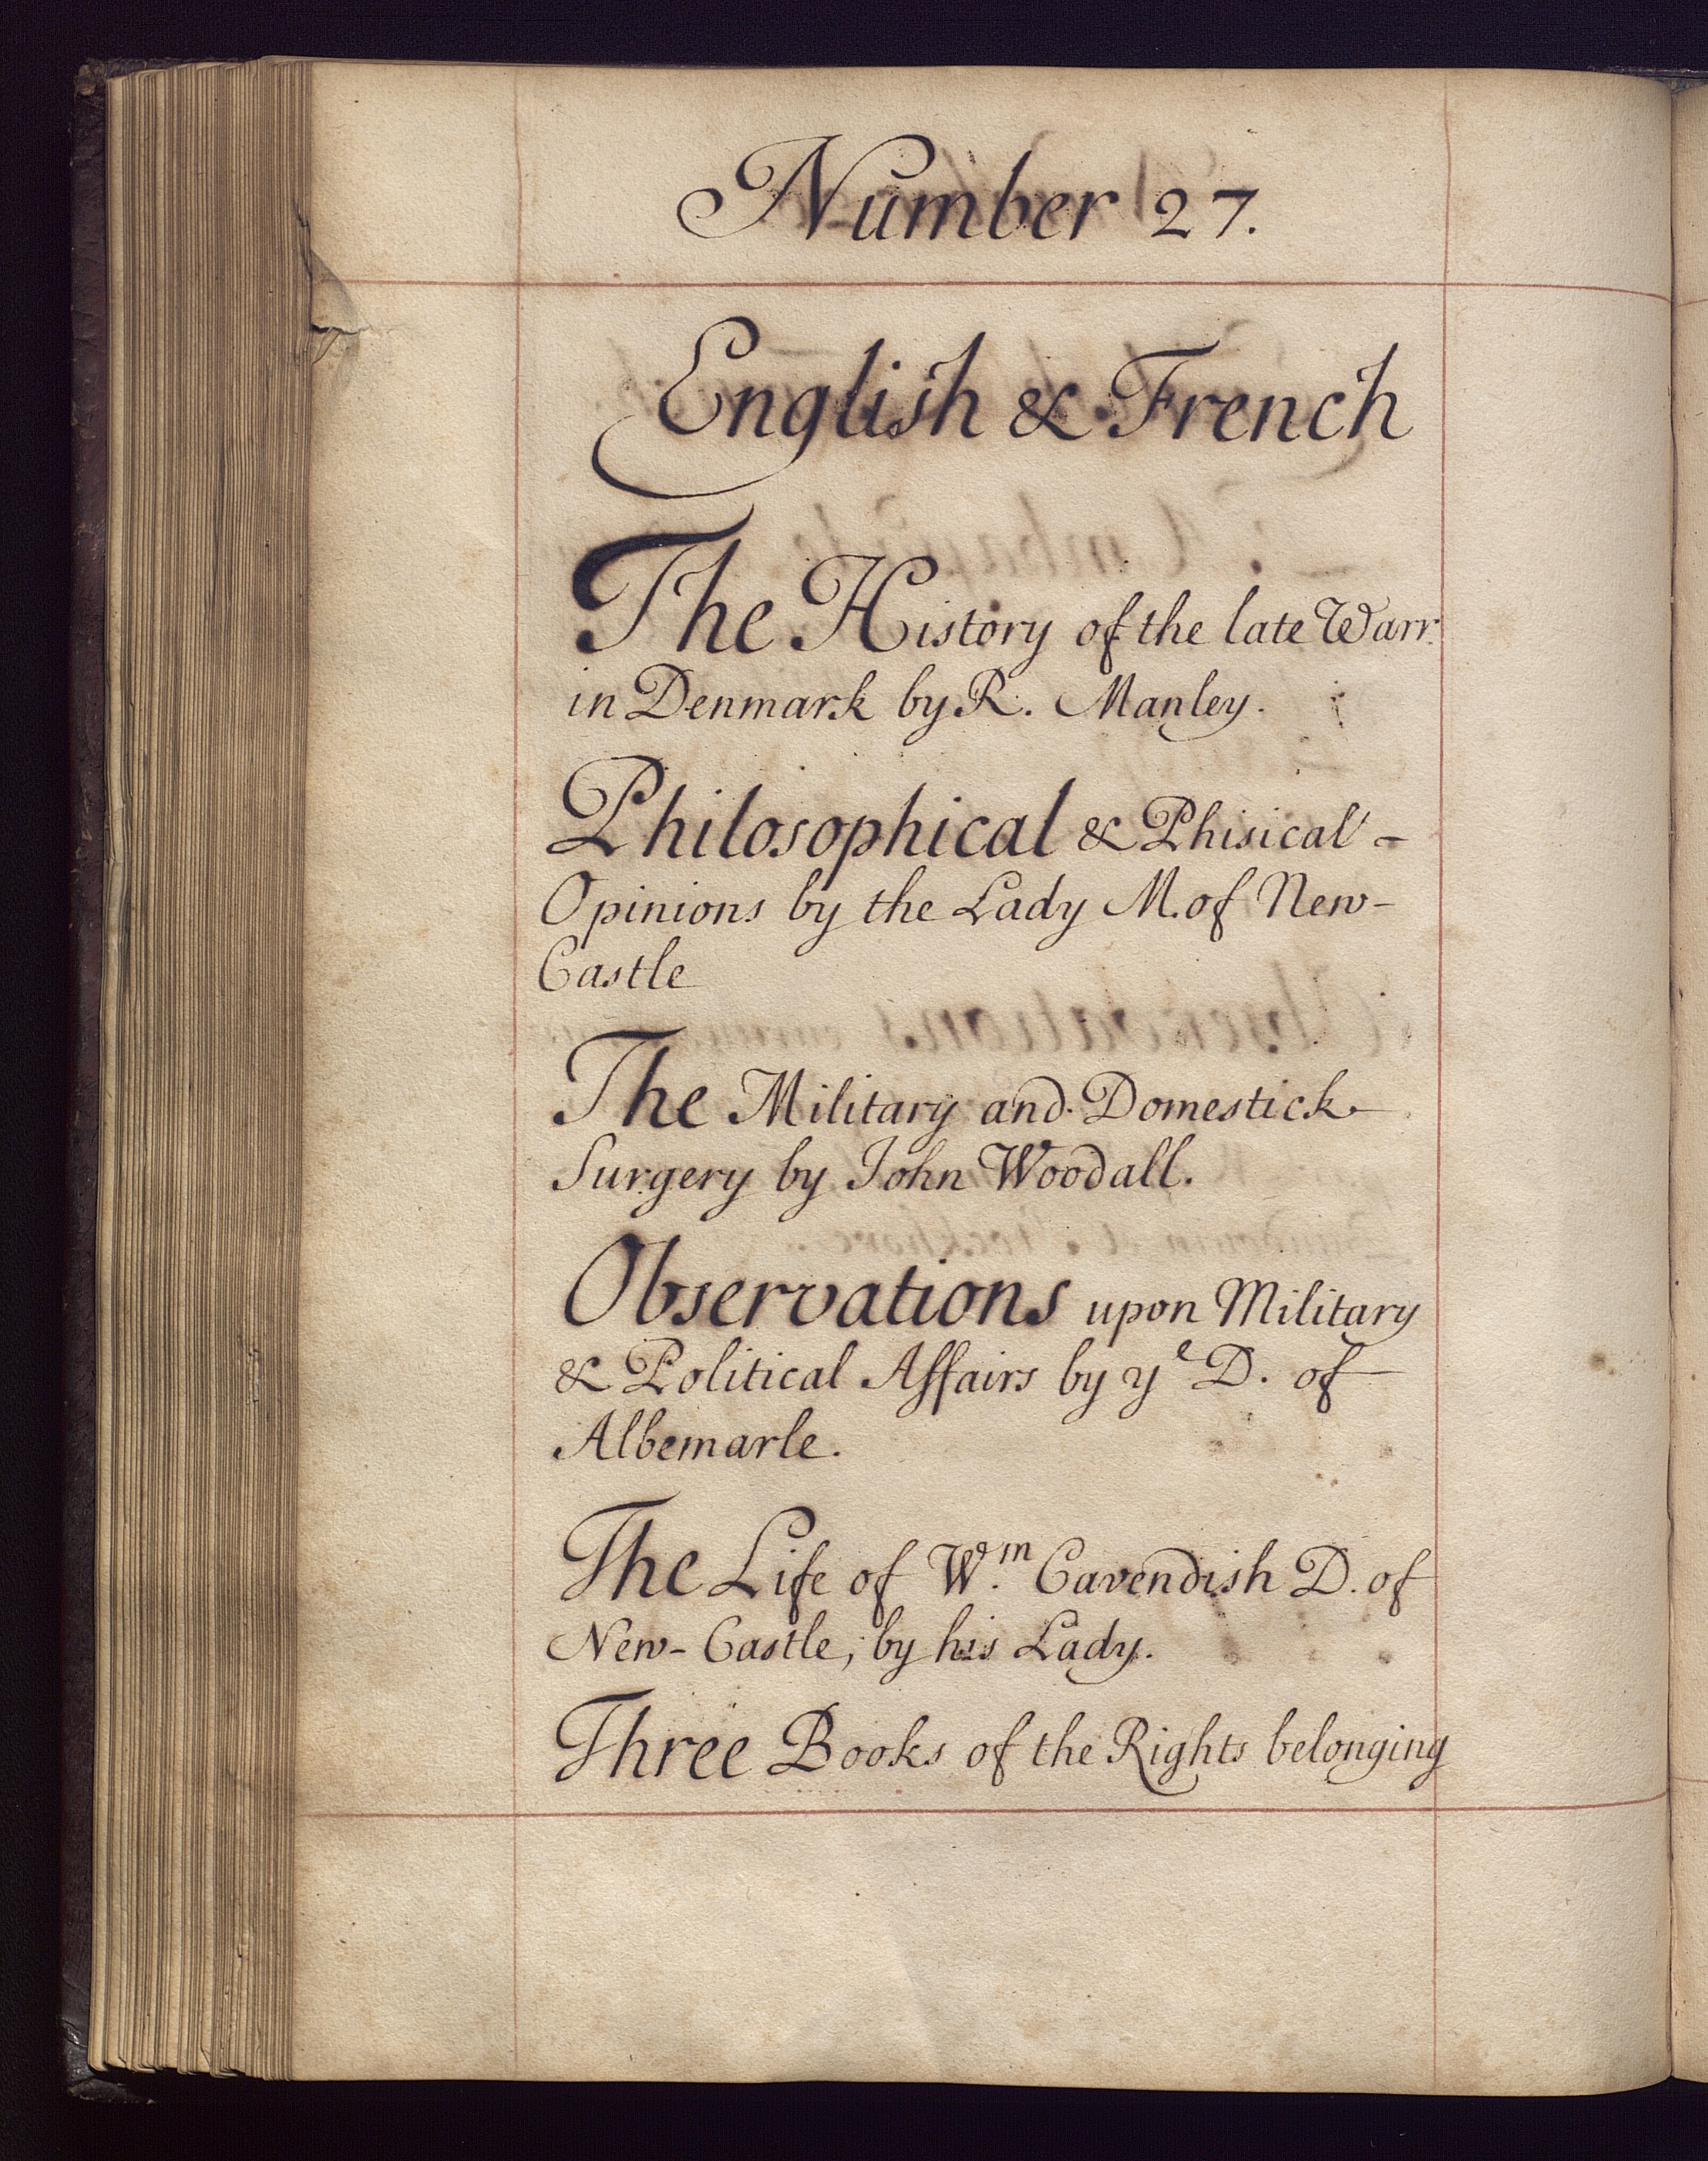 Number 27.
English & French
The History of the late Warr
in Denmark by R. Manley.
Philosophical & Phisical -
Opinions by the Lady M. of New-
Castle
The Military and Domestick
Surgery by John Woodall.
Observations upon Military
& Political Affairs by yᵉ D. of
Albemarle.
The Life of W.ᵐ Cavendish D. of
New-Castle, by his Lady.
Three Books of the Rights belonging